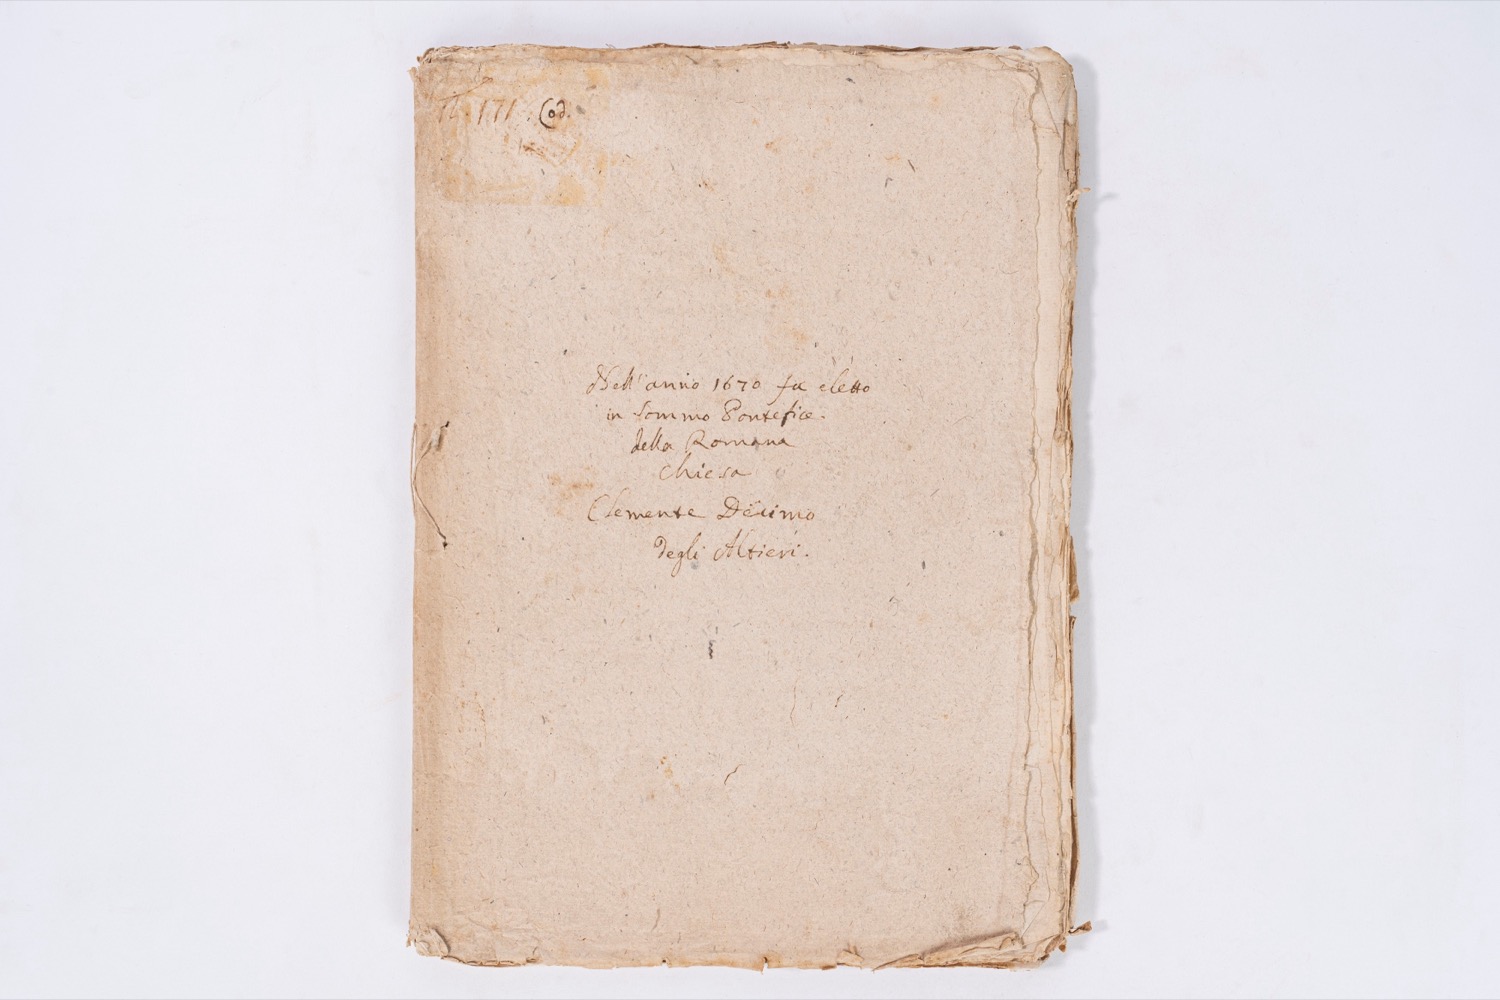 171. Cod.
Nell'anno 1670 fu eletto
in sommo Pontefice.
della Romana
Chiesa
Clemente Decimo
degli Altieri.